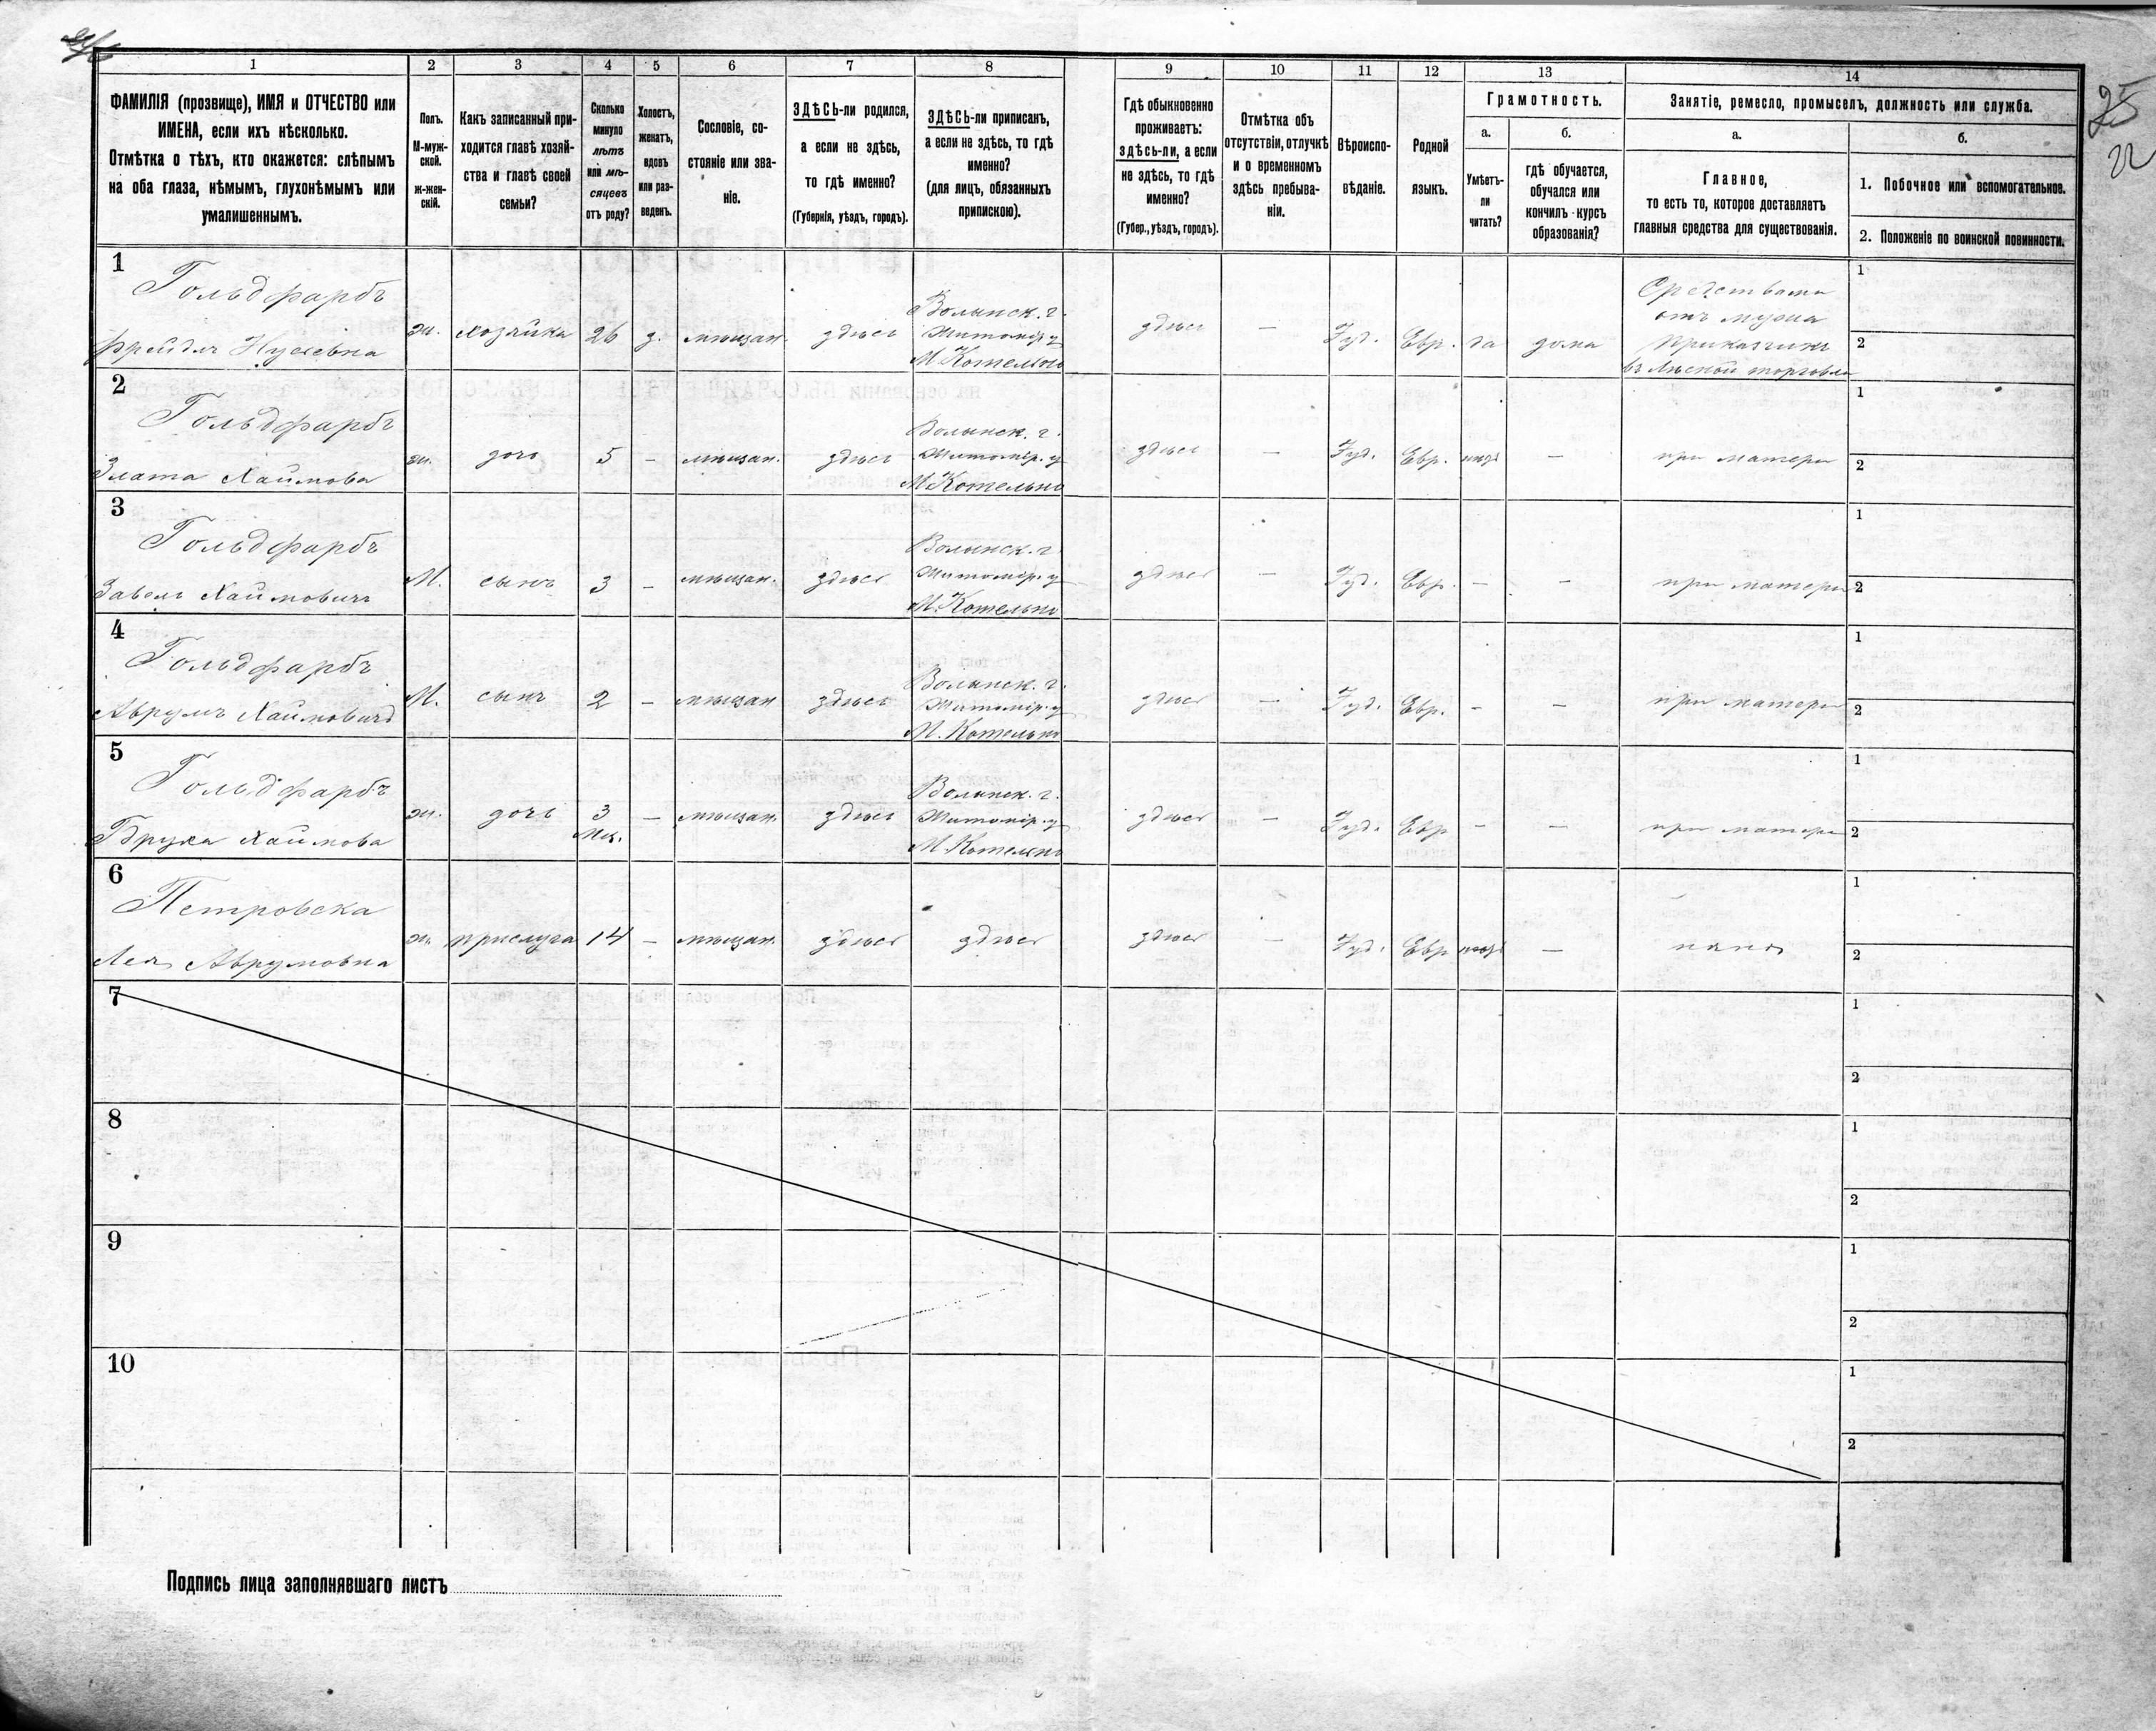 25
22
1
2
3
4
5
6
7
8
9
10
11
12
13
14
ФАМИЛІЯ (прозвище), ИМЯ и ОТЧЕСТВО или
ИМЕНА, если ихъ нѣсколько.
Отмѣтка о тѣхъ, кто окажется: слѣпымъ
на оба глаза, нѣмымъ, глухонѣмымъ или
умалишеннымъ.
Полъ.
М-муж-
ской.
ж-жен-
скій.
Какъ записанный при-
ходится главѣ хозяй-
ства и главѣ своей
семьи?
Сколько
минуло
лѣтъ
или мѣ-
сяцевъ
отъ роду?
Холостъ,
женатъ,
вдовъ
или раз-
веденъ.
Сословіе, со-
стояніе или зва-
ніе.
ЗДѢСЬ-ли родился,
а если не здѣсь,
то гдѣ именно?
(Губернія, уѣздъ, городъ).
ЗДѢСЬ-ли приписанъ,
а если не здѣсь, то гдѣ
именно?
(для лицъ, обязанныхъ
припискою).
Гдѣ обыкновенно
проживаетъ:
здѣсь-ли, а если
не здѣсь, то гдѣ
именно?
(Губер., уѣздъ, городъ).
Отмѣтка объ
отсутствіи, отлучкѣ
и о временномъ
здѣсь пребыва-
ніи.
Вѣроиспо-
вѣданіе.
Родной
языкъ.
Грамотность.
а.
б.
Умѣетъ-
ли
читать?
гдѣ обучается,
обучался или
кончилъ курсъ
образованія?
Занятіе, ремесло, промыселъ, должность или служба.
а.
б.
Главное,
то есть то, которое доставляетъ
главныя средства для существованія.
1. Побочное или вспомогательное.
2. Положеніе по воинской повинности.
1
Гольдфарбъ
Фрейдля Нусевна
ж.
хозяйка
26
з.
мѣщан.
здѣсь
Волынск. г.
Житомір. у
М. Котельно
здѣсь
—
Іуд.
Евр.
да
дома
Средствами
отъ мужа
приказчикъ
въ лѣсной торговли
1
2
2
Гольдфарбъ
Злата Хаимова
ж.
дочь
5
—
мѣщан.
здѣсь
Волынск. г.
Житомір. у
М. Котельно
здѣсь
—
Іуд.
Евр.
—
при матери
1
2
3
Гольдфарбъ
Завель Хаимовичъ
М.
сынъ
3
—
мѣщан.
здѣсь
Волынск. г.
Житомір. у
М. Котельно
здѣсь
—
Іуд.
Евр.
—
—
при матери
1
2
4
Гольдфарбъ
Аврумъ Хаимовичъ
М.
сынъ
2
—
мѣщан
здѣсь
Волынск. г.
Житомір. у
М. Котельно
здѣсь
—
Іуд.
Евр.
—
—
при матери
1
2
5
Гольдфарбъ
Бруха Хаимова
ж.
дочь
3
мѣс.
—
мѣщан.
здѣсь
Волынск. г.
Житомір. у
М. Котельно
здѣсь
—
Іуд.
Евр
—
—
при матери
1
2
6
Петровска
Лея Аврумовна
ж.
прислуга
14
—
мѣщан.
здѣсь
здѣсь
здѣсь
—
Іуд.
Евр
—
няня
1
2
7
1
2
8
1
2
9
1
2
10
1
2
Подпись лица заполнявшаго листъ